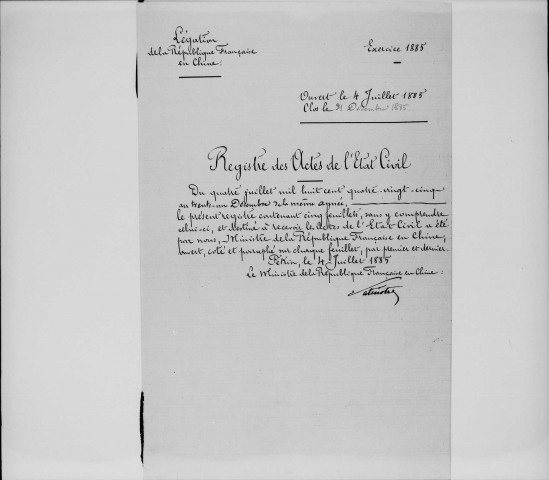 Légation
de la République Française
en Chine.
Exercice 1885
Ouvert le 4 Juillet 1885
Clos le 31 Décembre 1885.
Registre des Actes de l'Etat Civil
Du quatre juillet mil huit cent quatre-vingt-cinq
au trente-un Décembre de la même année,
le présent registre contenant cinq feuillets, sans y comprendre
celui-ci, et destiné à recevoir les Actes de l'Etat Civil a été
par nous, Ministre de la République Française en Chine,
ouvert, coté et paraphé sur chaque feuillet, par premier et dernier.
Pékin, le 4 Juillet 1885
Le Ministre de la République Française en Chine: